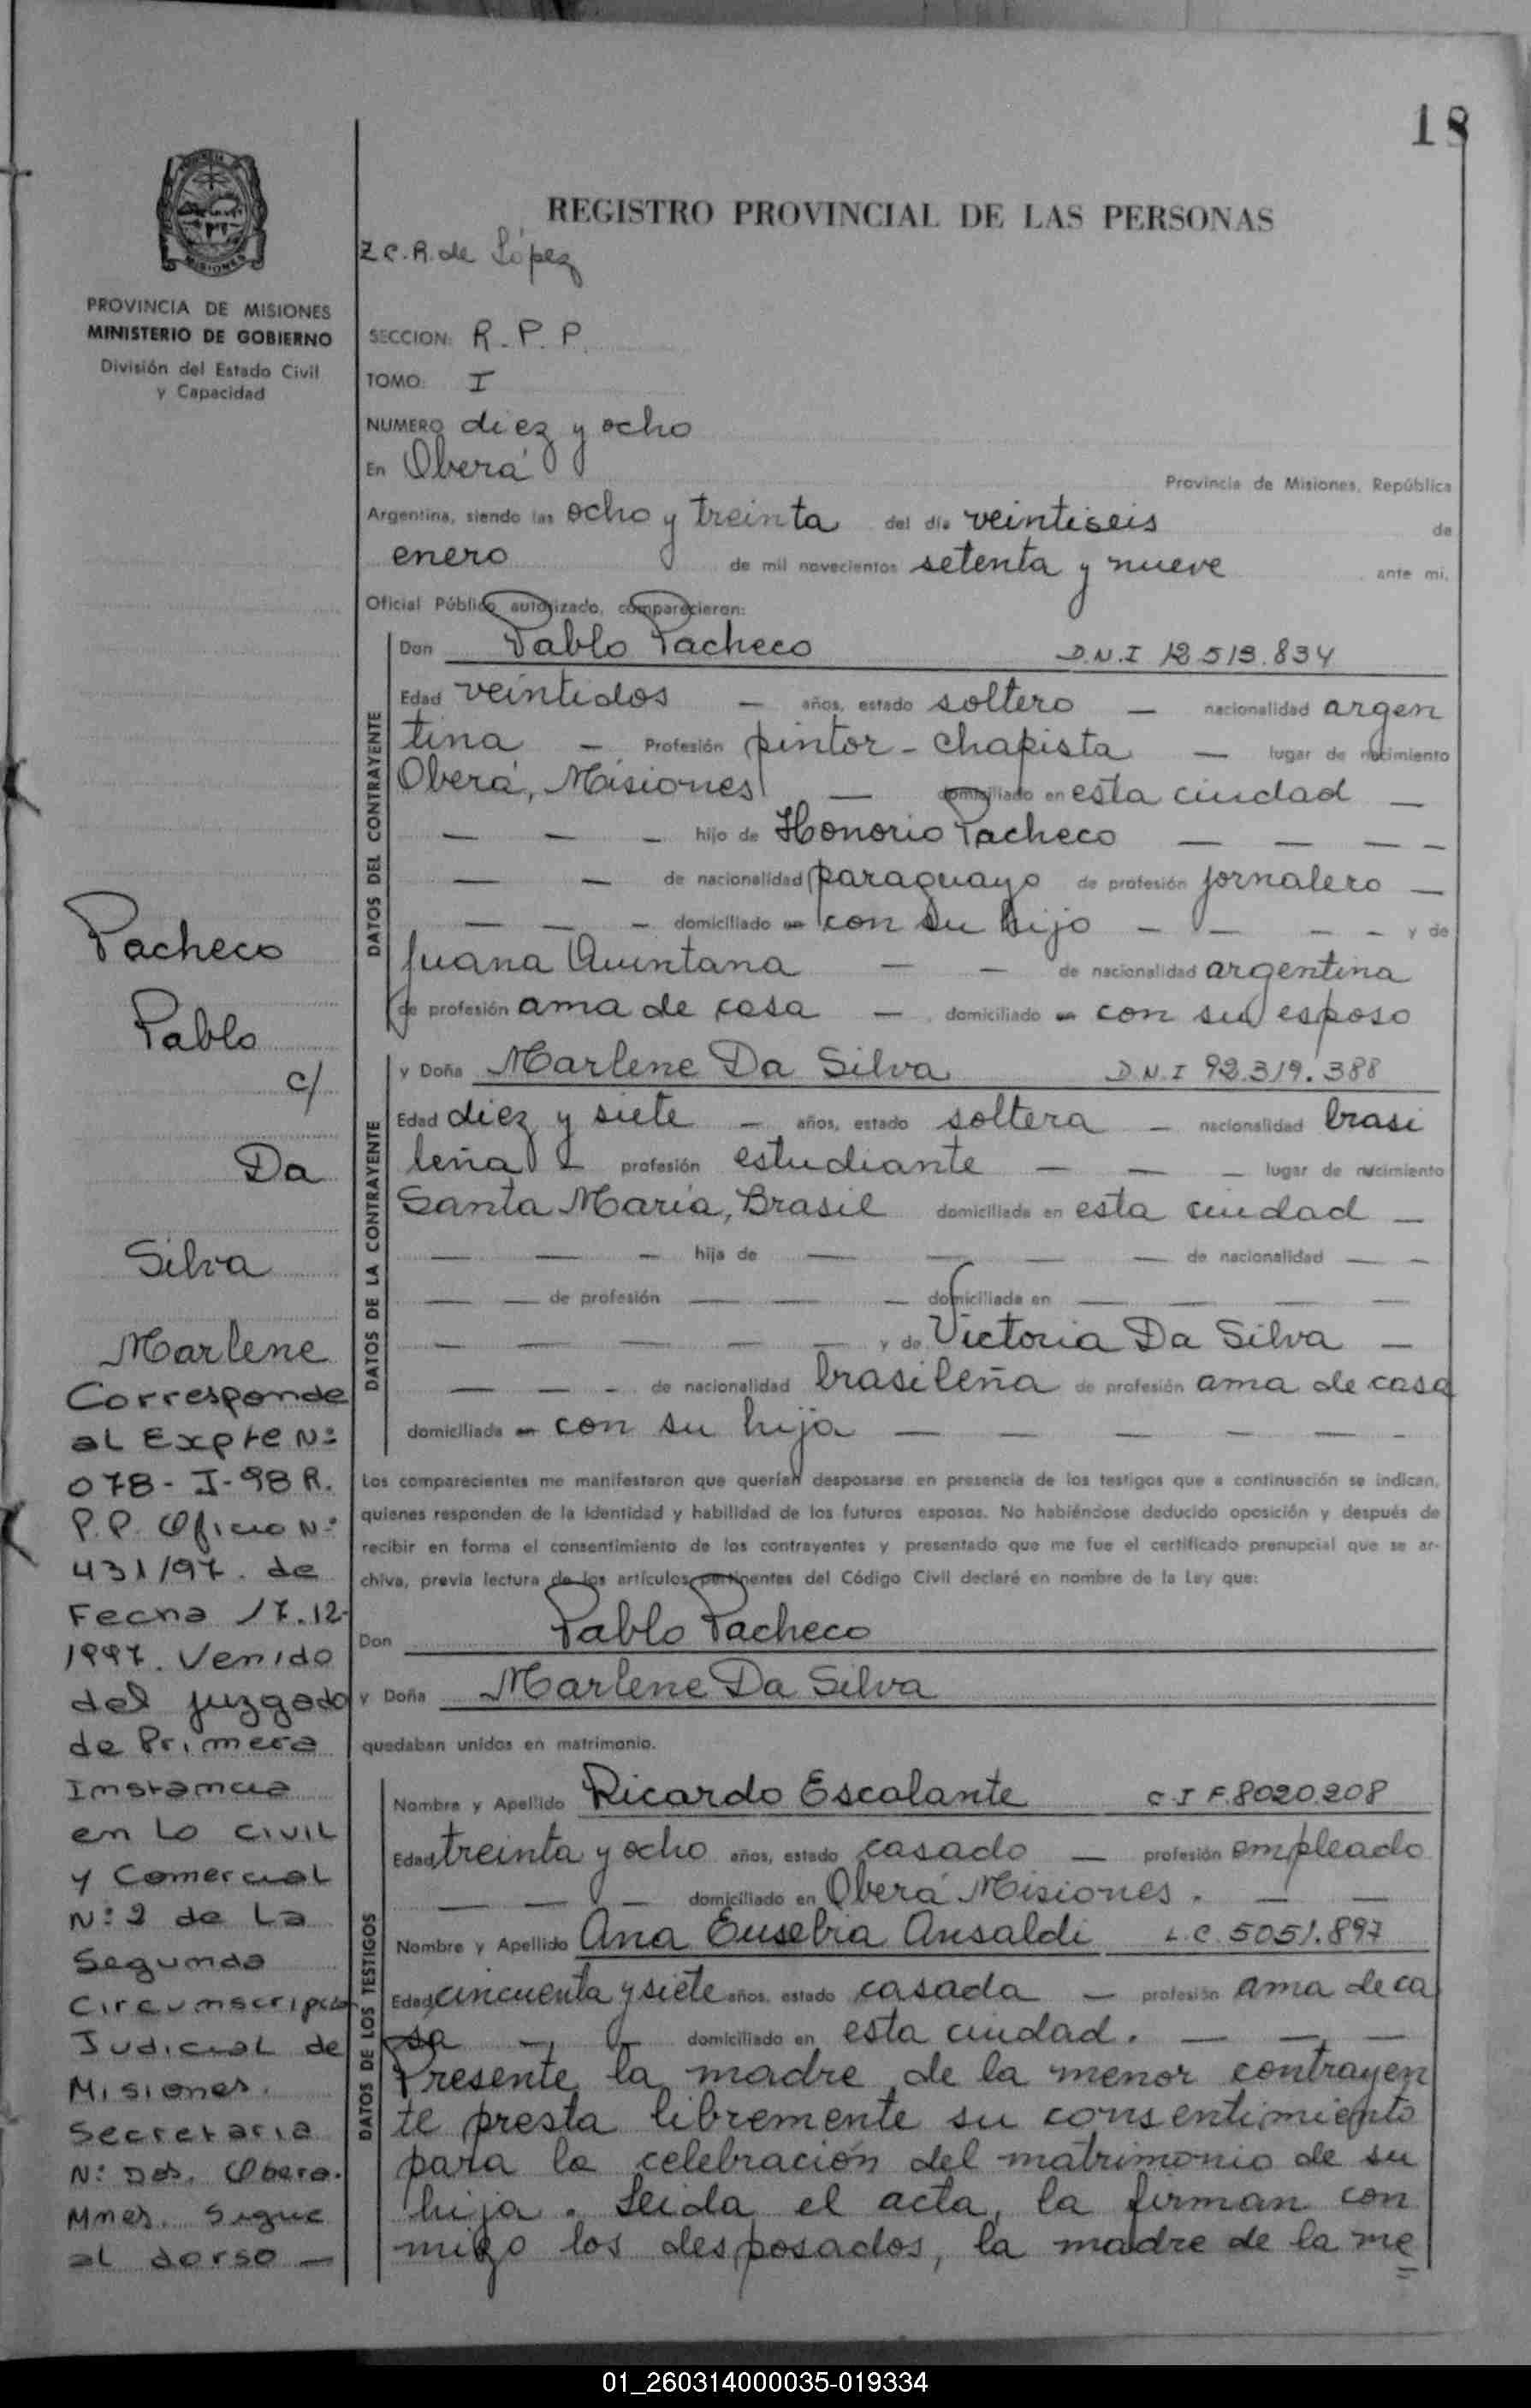 18
REGISTRO PROVINCIAL DE LAS PERSONAS
Z C. R. de López
MISIONES
PROVINCIA DE MISIONES
MINISTERIO DE GOBIERNO
División del Estado Civil
y Capacidad
SECCION: R. P. P.
TOMO: I
NUMERO diez y ocho
En Oberá Provincia de Misiones, República
Argentina, siendo las ocho y treinta del día veintiseis de
enero de mil novecientos setenta y nueve ante mi,
Oficial Público autorizado, comparecieron:
DATOS DEL CONTRAYENTE
Don Pablo Pacheco D.N.I 12.513.834
Edad veintidos — años, estado soltero — nacionalidad argen
tina — Profesión pintor - chapista — lugar de nacimiento
Oberá, Misiones — domiciliado en esta ciudad —
— — — hijo de Honorio Pacheco — — — —
— — de nacionalidad paraguayo de profesión jornalero —
— — — domiciliado en con su hijo — — — — y de
Juana Quintana — — de nacionalidad argentina
de profesión ama de casa — domiciliado en con su esposo
DATOS DE LA CONTRAYENTE
y Doña Marlene Da Silva D.N.I 92.319.388
Edad diez y siete — años, estado soltera — nacionalidad brasi
leña — profesión estudiante — — — lugar de nacimiento
Santa María, Brasil domiciliada en esta ciudad —
— — — hija de — — — — de nacionalidad — —
— — de profesión — — — domiciliada en — — — —
— — — — — y de Victoria Da Silva —
— — — de nacionalidad brasileña de profesión ama de casa
domiciliada en con su hija — — — — — —
Los comparecientes me manifestaron que querían desposarse en presencia de los testigos que a continuación se indican,
quienes responden de la identidad y habilidad de los futuros esposos. No habiéndose deducido oposición y después de
recibir en forma el consentimiento de los contrayentes y presentado que me fue el certificado prenupcial que se ar-
chiva, previa lectura de los artículos pertinentes del Código Civil declaré en nombre de la Ley que:
Don Pablo Pacheco
y Doña Marlene Da Silva
quedaban unidos en matrimonio.
DATOS DE LOS TESTIGOS
Nombre y Apellido Ricardo Escalante C I F. 8020.208
Edad treinta y ocho años, estado casado — profesión empleado
— — — domiciliado en Oberá Misiones. — —
Nombre y Apellido Ana Eusebia Ansaldi L.C. 5051.897
Edad cincuenta y siete años, estado casada — profesión ama de ca
sa — — domiciliado en esta ciudad. — — —
Presente la madre de la menor contrayen
te presta libremente su consentimiento
para la celebración del matrimonio de su
hija. Leida el acta, la firman con
migo los desposados, la madre de la me
Pacheco
Pablo
c/
Da
Silva
Marlene
Corresponde
al Expte Nº
078 - I - 98 R.
P.P. Oficio Nº
431/97. de
Fecha 17.12-
1997. Venido
del juzgado
de Primera
Instancia
en lo civil
y Comercial
Nº 2 de La
Segunda
Circunscripción
Judicial de
Misiones.
Secretaria
Nº Dos. Obera.
Mnes. Sigue
al dorso —
01_260314000035-019334